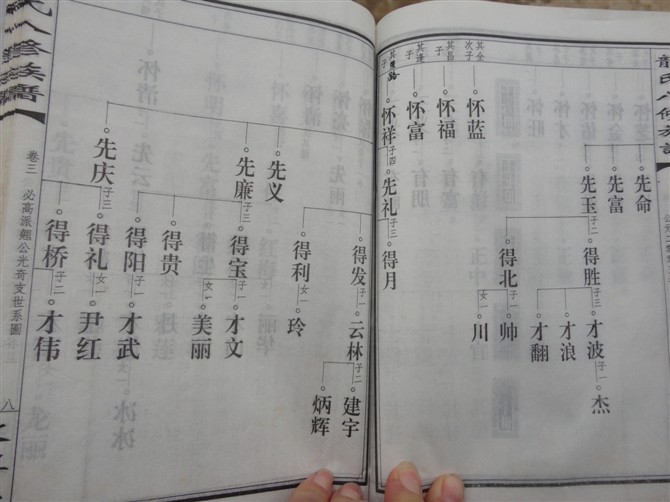 龍氏八修族譜
先命
先富
先玉 子二
得胜 子三
才波 子一
杰
才浪
才翻
得北 子一 女一
帅
川
其金次子
怀蓝
其昌子
怀福
其逢子
怀富
怀祥 子四
先礼 子三
得月
得发 子一
云林 子二
建宇
炳辉
得利 女一
玲
先义
先廉 子三
得宝 子一 女一
才文
美丽
得贵
得阳 子一
才武
先庆 子三
得礼 女一
尹红
得桥 子二
才伟
氏八修族譜
卷三
八